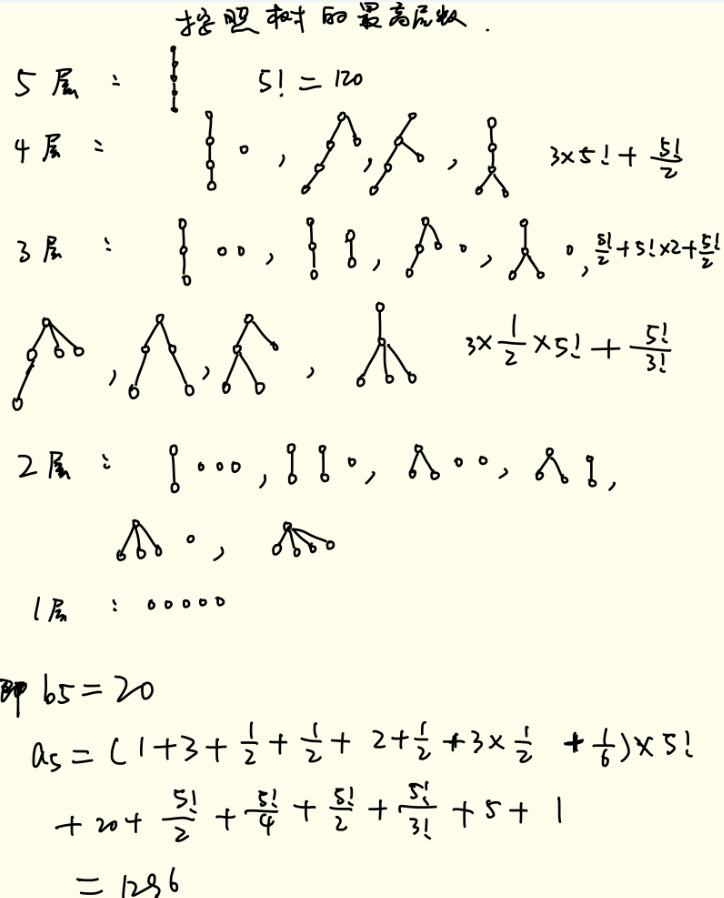 按照树的最高层数.
5层: 5! = 120
4层: , , , 3×5! + 5!/2
3层: , , , , 5!/2 + 5!×2 + 5!/2
, , , 3×1/2×5! + 5!/3!
2层: , , , ,
,
1层:
即 b5 = 20
a5 = (1+3+1/2+1/2+2+1/2+3×1/2+1/6)×5!
+20+5!/2+5!/4+5!/2+5!/3!+5+1
= 1296